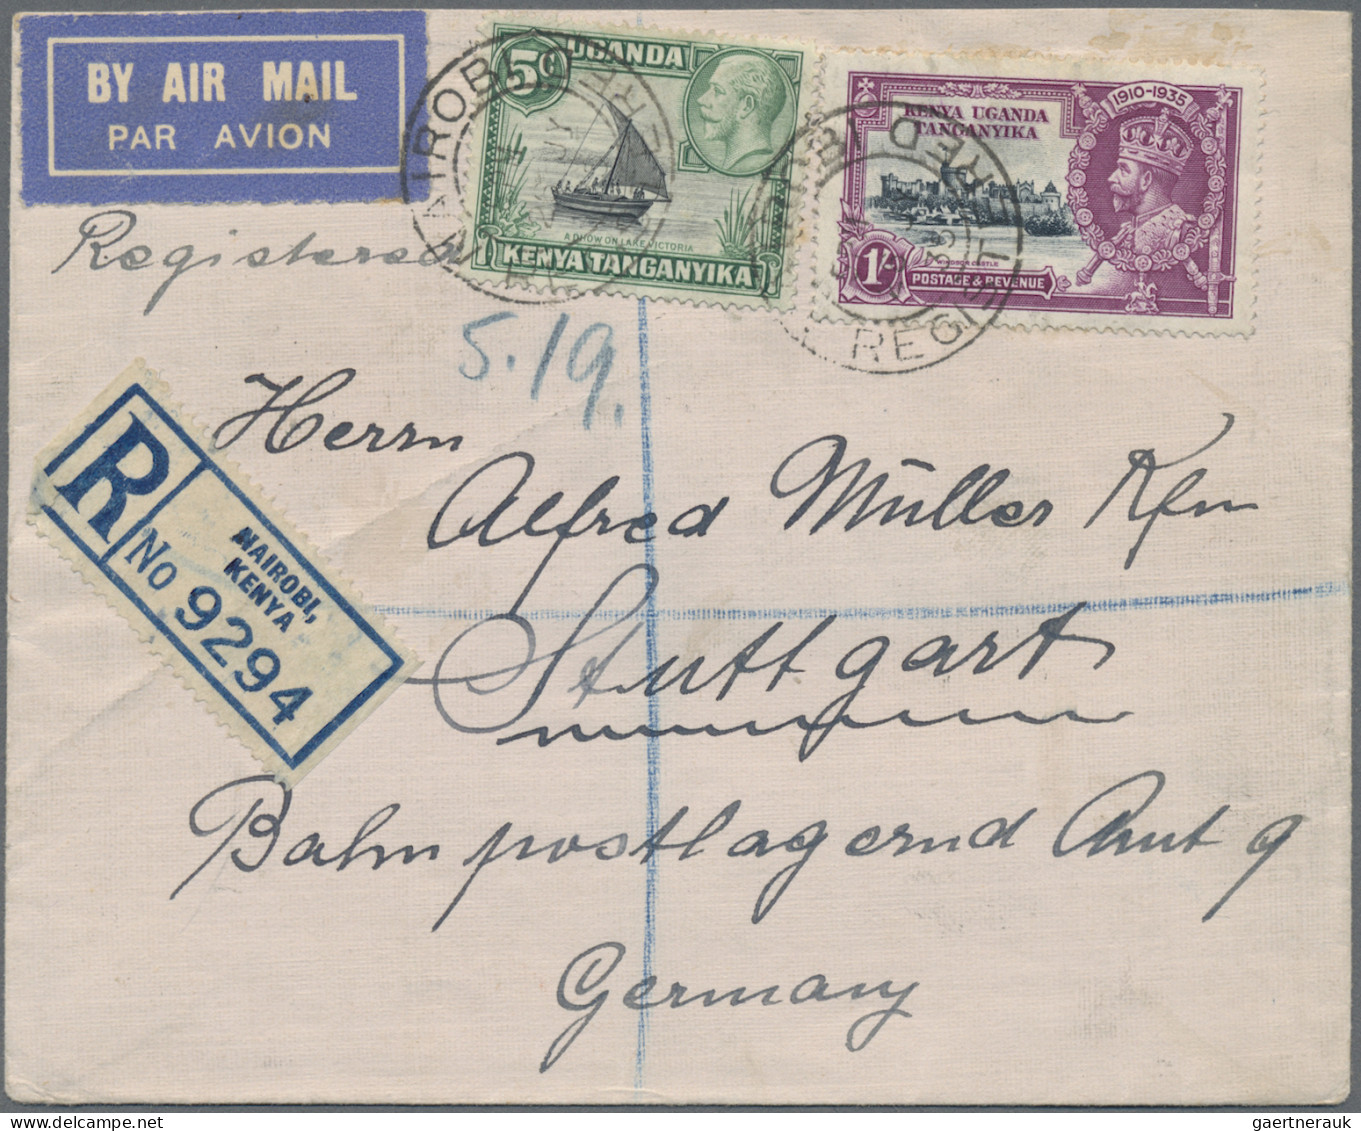 BY AIR MAIL
PAR AVION
5c UGANDA
A DHOW ON LAKE VICTORIA
KENYA TANGANYIKA
KENYA UGANDA
TANGANYIKA
1910-1935
WINDSOR CASTLE
1/- POSTAGE & REVENUE
NAIROBI
REGIST
Registered
5.19.
R
No 9294
NAIROBI,
KENYA
Herrn
Alfred Müller Kfm
Stuttgart
Bahnpostlagernd Amt 9
Germany
gaertnerauk @ delcampe.net